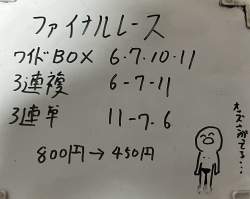 ファイナルレース
ワイドBOX 6・7・10・11
3連複 6-7-11
3連単 11-7-6
800円→450円